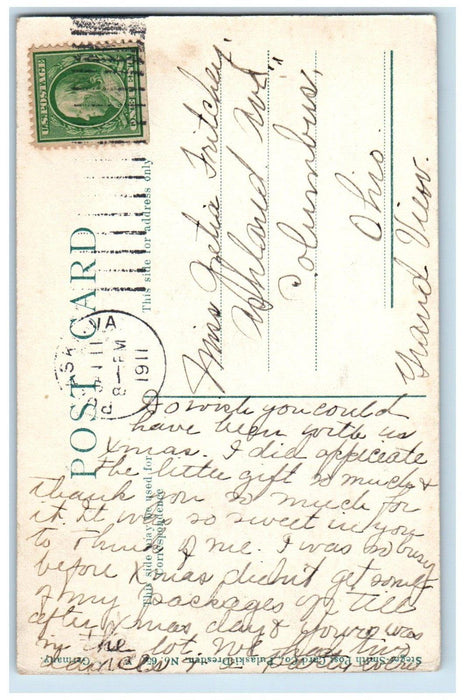 U.S. POSTAGE
ONE CENT
POST CARD
This side for address only
This side may be used for
Correspondence
VA
JAN 11
8-PM
1911
Miss
Fritchey.
Ashland Ave.,
Columbus,
Ohio.
Grand View.
So wish you could
have been with us
Xmas. I did appreciate
the little gift so much &
thank you so much for
it. It was so sweet in you
to think of me. I was so busy
before Xmas didn't get some
of my packages off till
after Xmas day & yours was
in the lot. We had
Steger-Smith Post Card Co., Pulaski Dresden No.
Germany